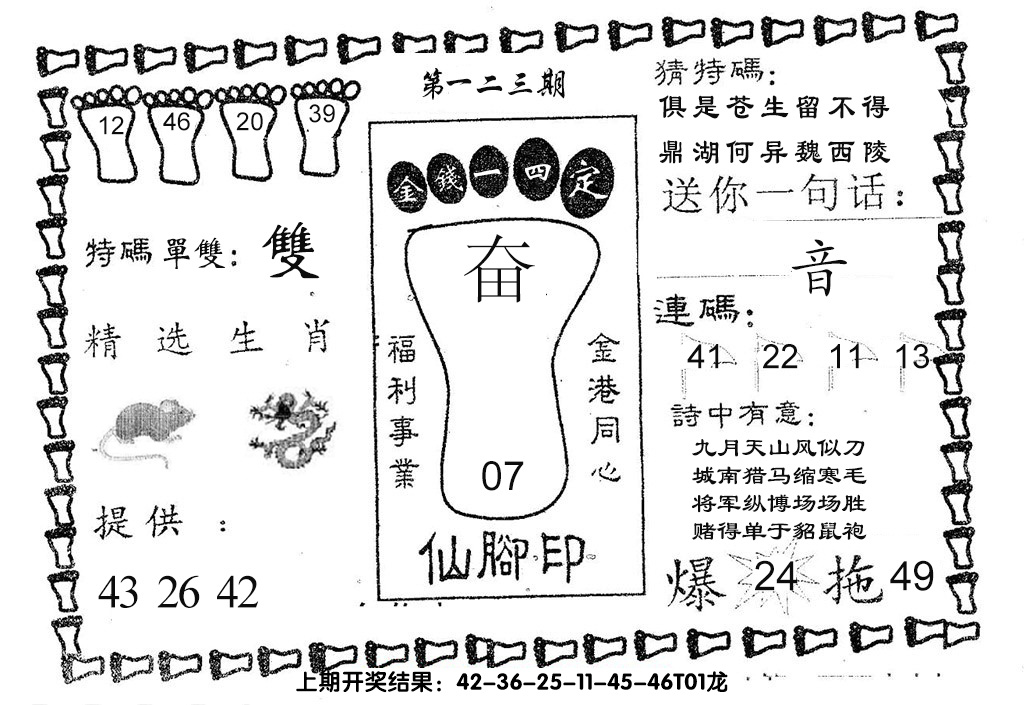 第一二三期
12 46 20 39
特碼單雙：雙
精选生肖
提供：
43 26 42
金錢一四定
奋
福利事業
金港同心
07
仙腳印
猜特碼：
俱是苍生留不得
鼎湖何异魏西陵
送你一句话：
音
連碼：
41 22 11 13
詩中有意：
九月天山风似刀
城南猎马缩寒毛
将军纵博场场胜
赌得单于貂鼠袍
爆 24 拖 49
上期开奖结果：42-36-25-11-45-46T01龙